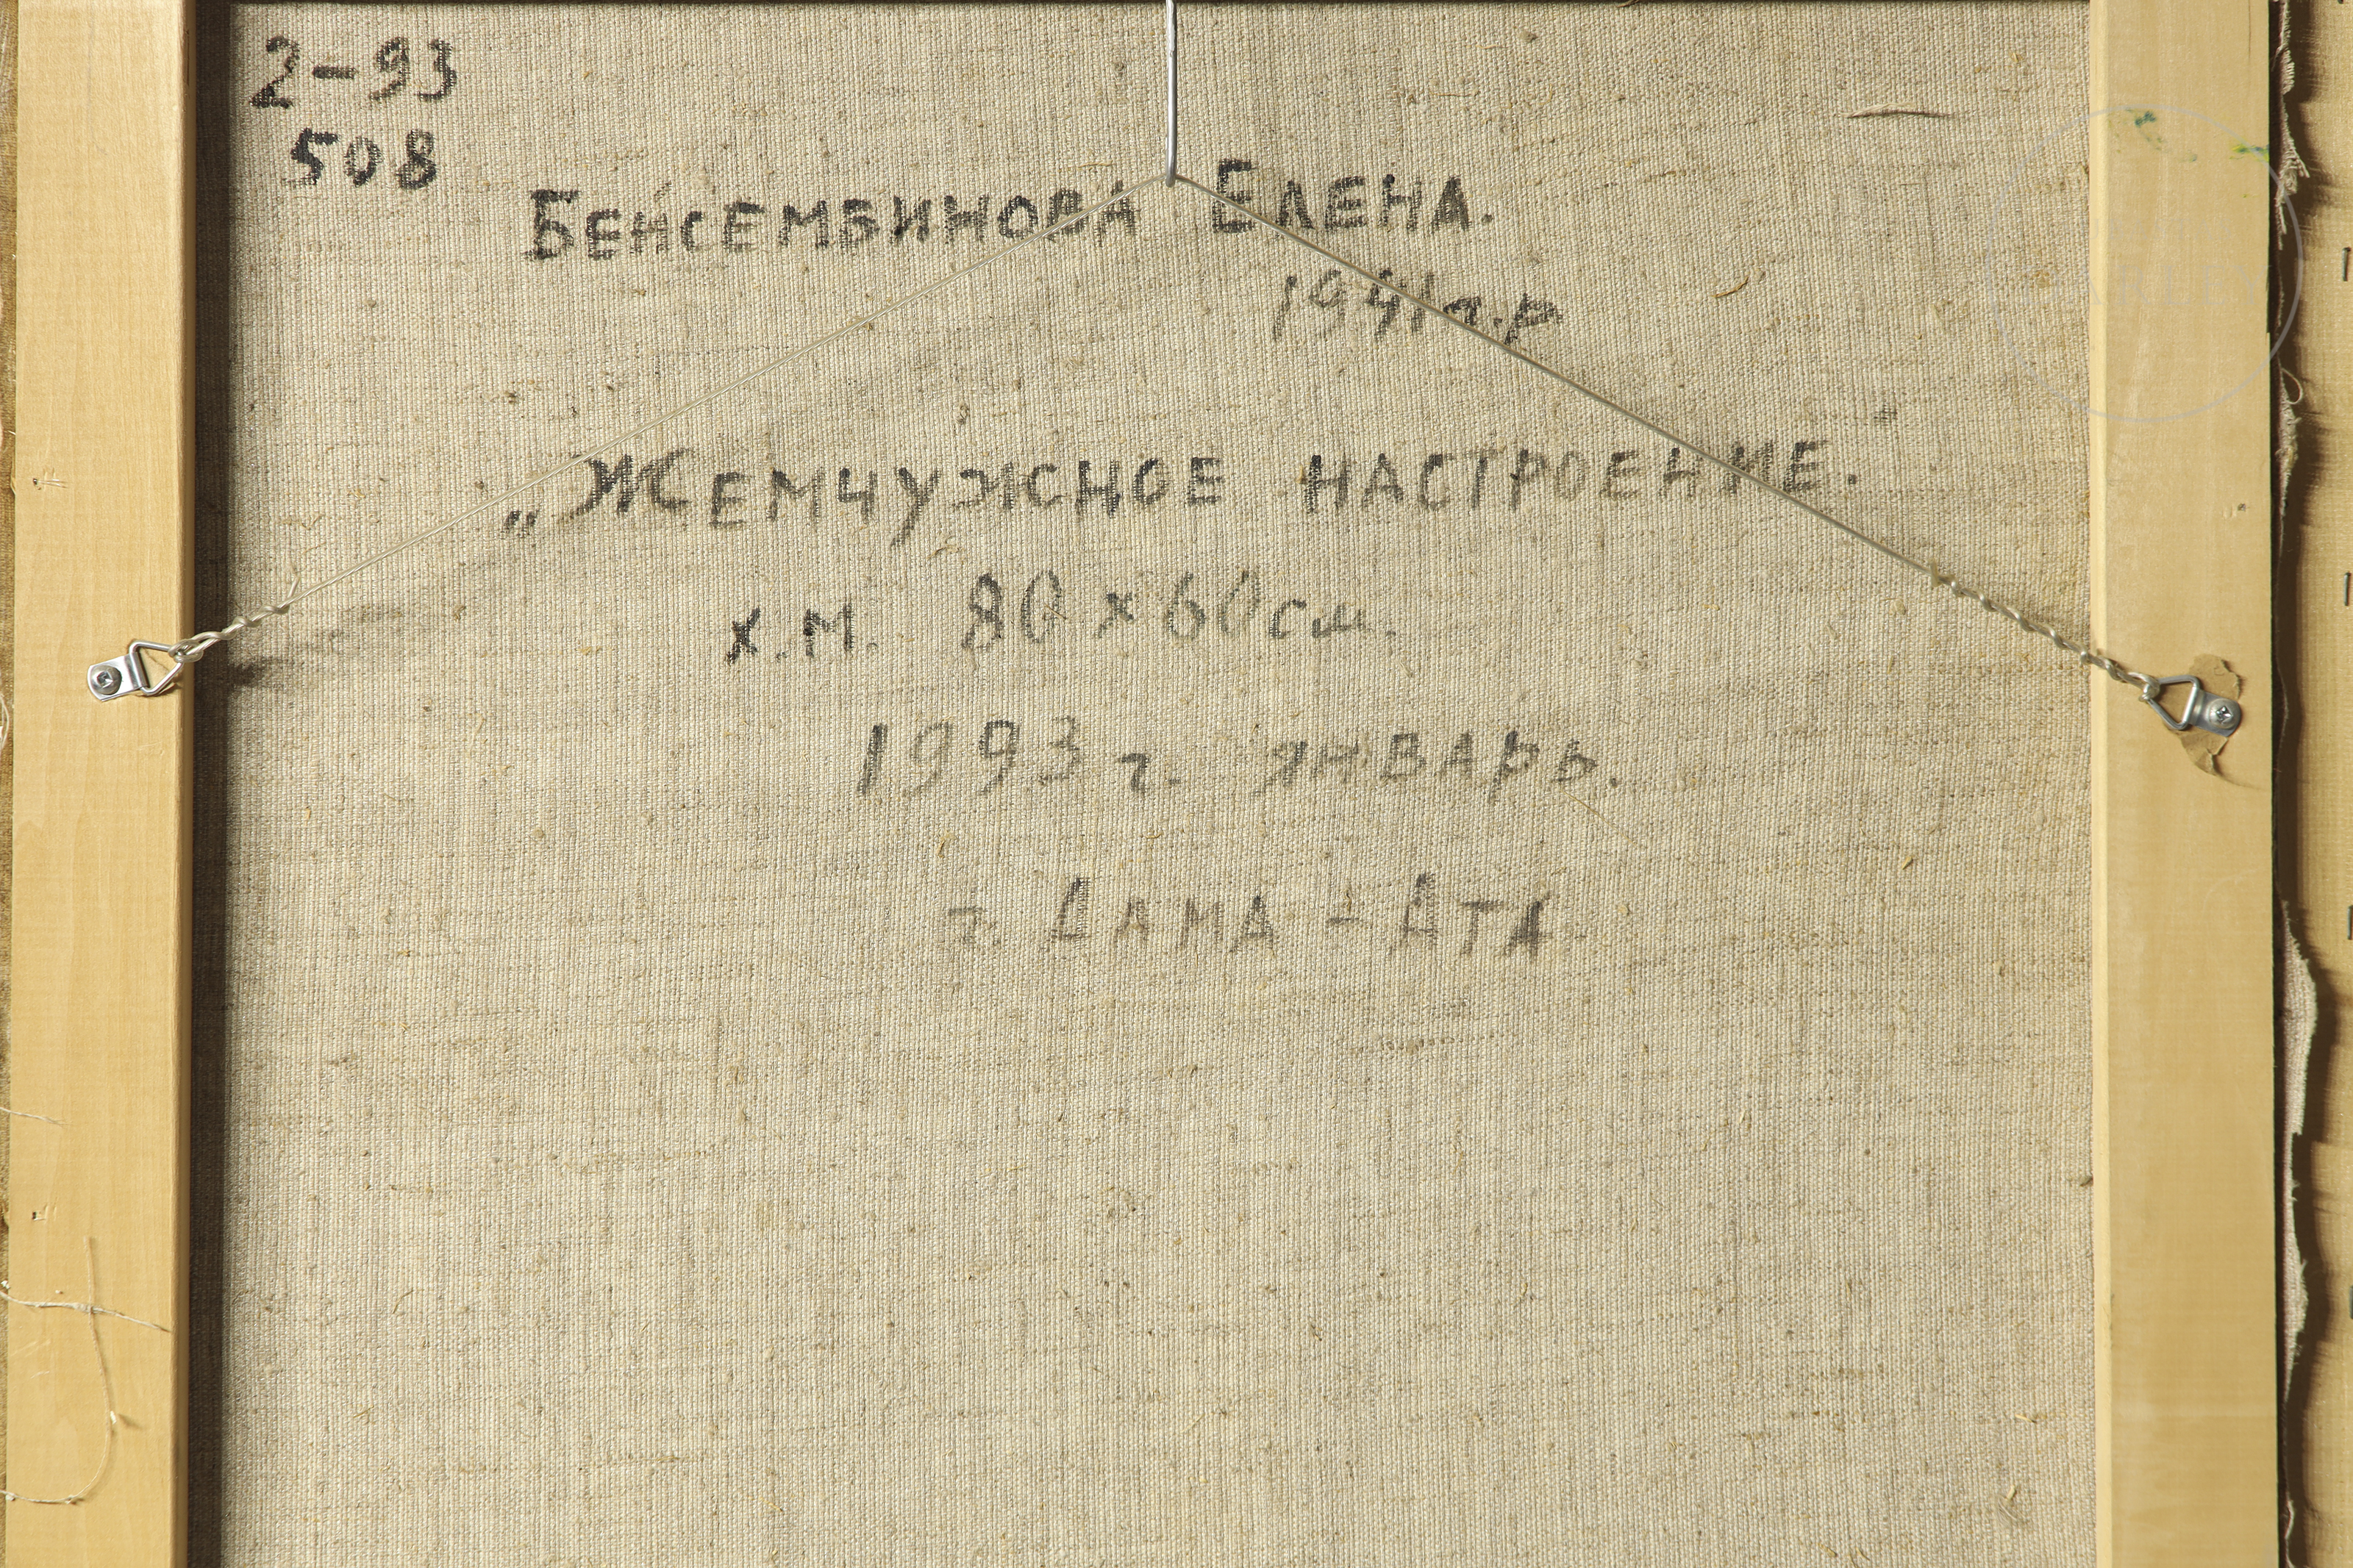 2-93
508
БЕЙСЕМБИНОВА ЕЛЕНА.
1941г.р
„ЖЕМЧУЖНОЕ НАСТРОЕНИЕ."
х.м. 80 x 60 см.
1993 г. ЯНВАРЬ.
г. АЛМА-АТА